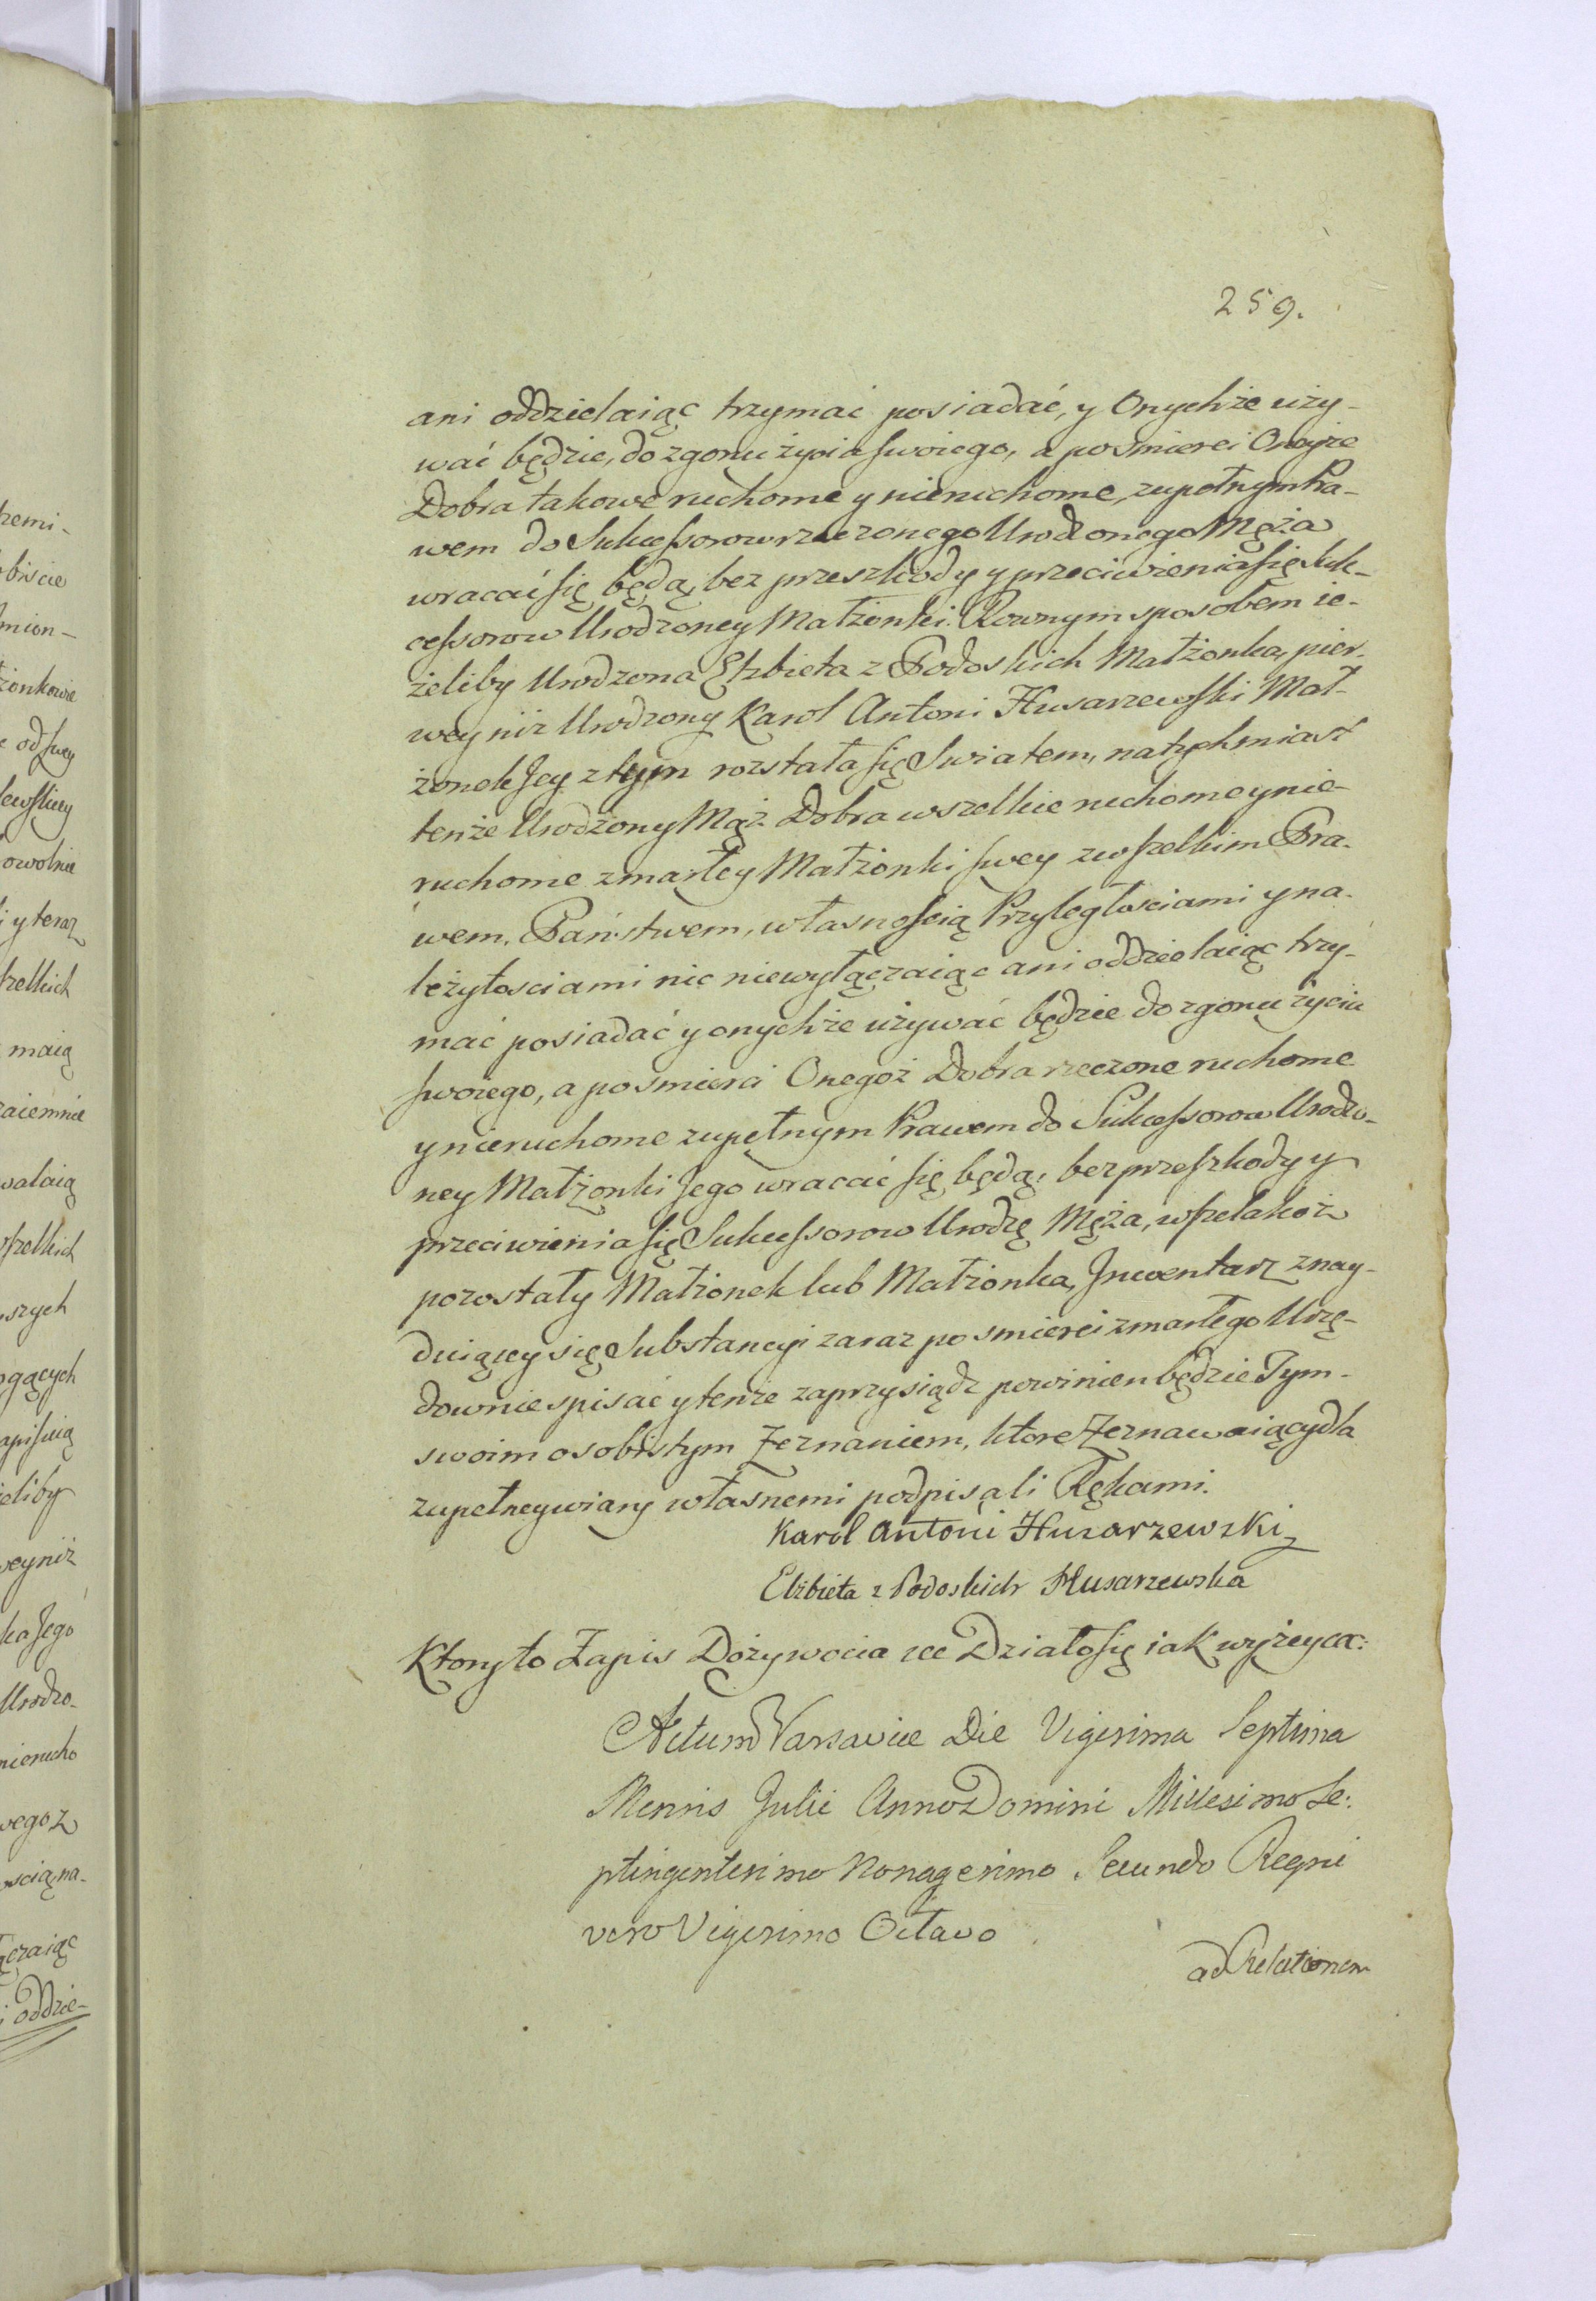 259.
ani oddzielaiąc trzymać posiadać, y Onychże uży-
wać będzie, do zgonu życia swoiego, a po smierci Oneyże
Dobra takowe ruchome y nieruchome, zupełnym Pra-
wem do Sukcessorow rzeczonego Urodzonego Męża
wracać się będą, bez przeszkody y przeciwienia się Suk-
cessorow Urodzoney Małżonki. Rownym sposobem ie-
żeliby Urodzona Elżbieta z Podoskich Małżonka, pier-
wey niż Urodzony Karol Antoni Husarzewski Mał-
żonek Jey z tym rozstała się Swiatem, natychmiast
tenże Urodzony Mąż Dobra wszelkie ruchome y nie-
ruchome zmarłey Małżonki swey z wszelkim Pra-
wem, Państwem, własnością Przyległosciami y na-
leżytosciami nic niewyłączaiąc ani oddzielaiąc trzy-
mać posiadać y onychże używać będzie do zgonu życia
swoiego, a po smierci Onegoż Dobra rzeczone ruchome
y nieruchome zupełnym Prawem do Sukcessorow Urodzo-
ney Małżonki Jego wracać się będą, bez przeszkody y
przeciwienia się Sukcessorow Urodzo Męża, wszelakoż
pozostały Małżonek lub Małżonka, Inwentarz znay-
duiącey się Substancyi zaraz po smierci zmarłego Urzę-
downie spisać y tenże zaprzysiądz powinien będzie Tym-
swoim osobistym Zeznaniem, ktore Zeznawaiący dla
zupełney wiary własnemi podpisali Rękami.
Karol Antoni Husarzewski
Elżbieta z Podoskich Husarzewska
Ktory to Zapis Dożywocia etc Działo się iak wyżey ca:
Actum Varsaviae Die Vigesima Septima
Mensis Julii Anno Domini Millesimo Se:
ptingentesimo Nonagesimo Secundo Regni
vero Vigesimo Octavo
ad Relationem